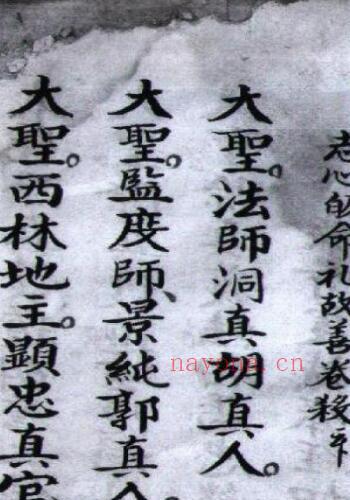 志心皈命礼故善卷殺卞
大聖。法師洞真胡真人。
大聖。監度師、景純郭真人。
大聖。西林地主。顯忠真官
nayona.cn